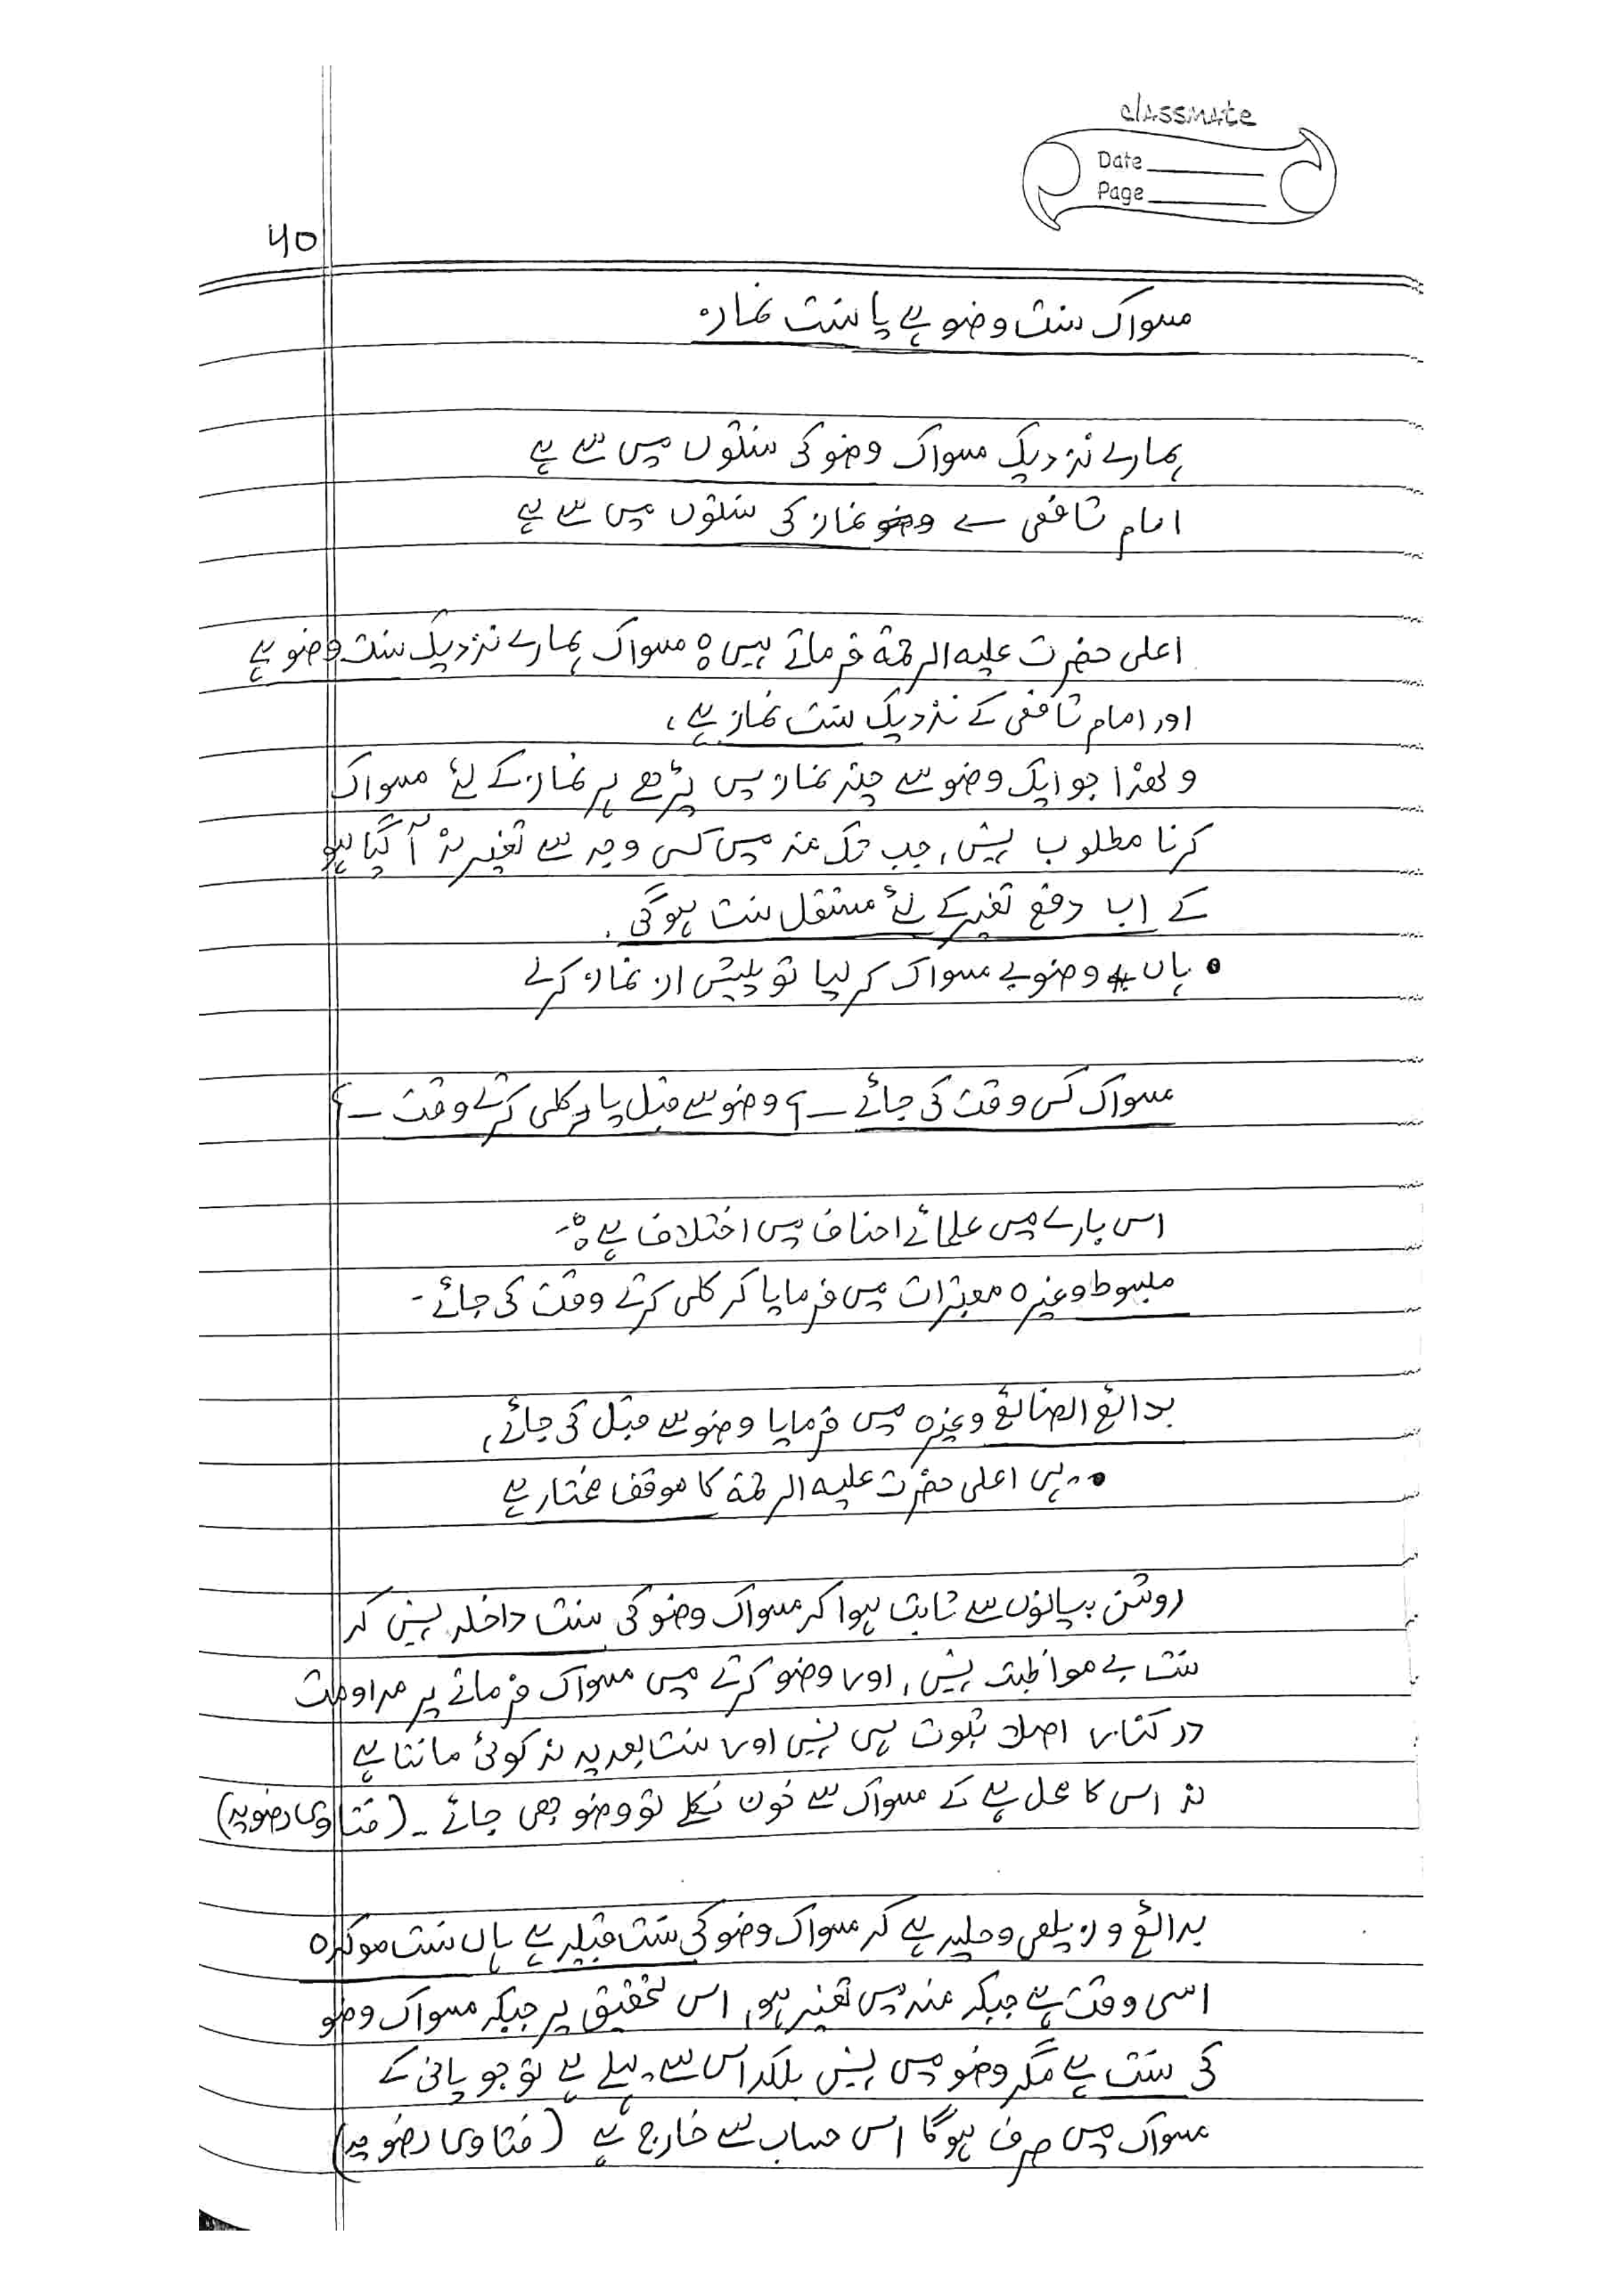 classmate
Date
Page
40
مسواک سنت وضو ہے یا سنت نماز۔
ہمارے نزدیک مسواک وضو کی سنتوں میں سے ہے
امام شافعی سے نماز کی سنتوں میں سے ہے
اعلی حضرت علیہ الرحمۃ فرماتے ہیں ہ مسواک ہمارے نزدیک سنت وضو ہے
اور امام شافعی کے نزدیک سنت نماز ہے،
و لھذا جو ایک وضو سے چند نمازیں پڑھے ہر نماز کے لئے مسواک
کرنا مطلوب نہیں، جب تک منہ میں کسی وجہ سے تغیر نہ آ گیا ہو
کے اب دفع تغیر کے لئے مستقل سنت ہوگی۔
• ہاں وضو بے مسواک کر لیا تو پیش از نماز کرلے
مسواک کس وقت کی جائے ــ؟ وضو سے قبل یا کلی کرتے وقت ــ؟
اس بارے میں علمائے احناف میں اختلاف ہے :ـ
مبسوط وغیرہ معتبرات میں فرمایا کہ کلی کرتے وقت کی جائے۔
بدائع الصنائع وغیرہ میں فرمایا وضو سے قبل کی جائے،
• یہی اعلی حضرت علیہ الرحمۃ کا موقف مختار ہے
روشن بیانوں سے ثابت ہوا کہ مسواک وضو کی سنت داخلہ نہیں کہ
سنت بے مواظبت نہیں، اور وضو کرتے میں مسواک فرمانے پر مداومت
در کنار اصلا ثبوت ہی نہیں اور سنت بعدیہ نہ کوئی مانتا ہے
نہ اس کا محل ہے کے مسواک سے خون نکلے تو وضو بھی جائے۔ (فتاوی رضویہ)
بدائع و زیلعی و حلیہ ہے کہ مسواک وضو کی سنت قبلیہ ہے ہاں سنت موکدہ
اسی وقت ہے جبکہ منہ میں تغیر ہو، اس تحقیق پر جبکہ مسواک وضو
کی سنت ہے مگر وضو میں نہیں بلکہ اس سے پہلے ہے تو جو پانی کے
مسواک میں صرف ہوگا اس حساب سے خارج ہے (فتاوی رضویہ)